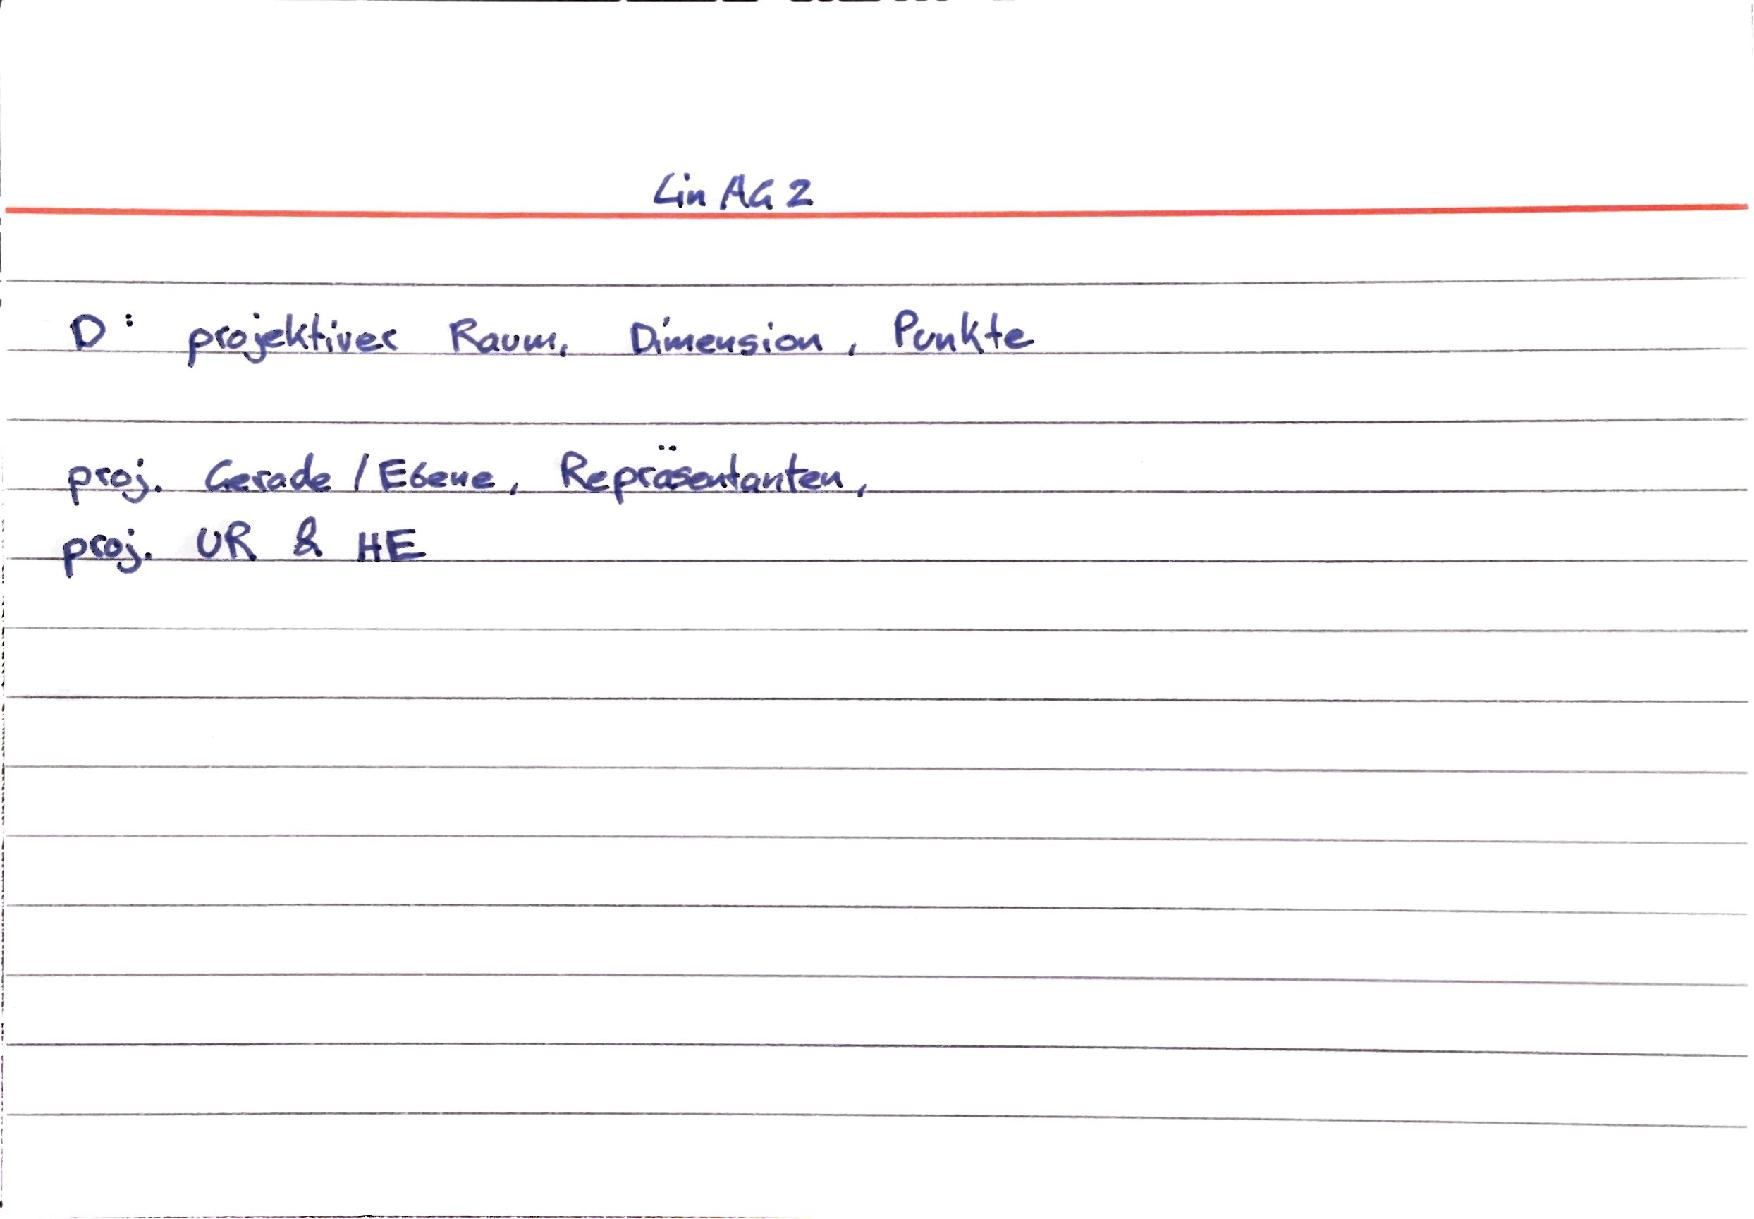 Lin AG 2
D: projektiver Raum, Dimension, Punkte
proj. Gerade / Ebene, Repräsentanten,
proj. UR & HE